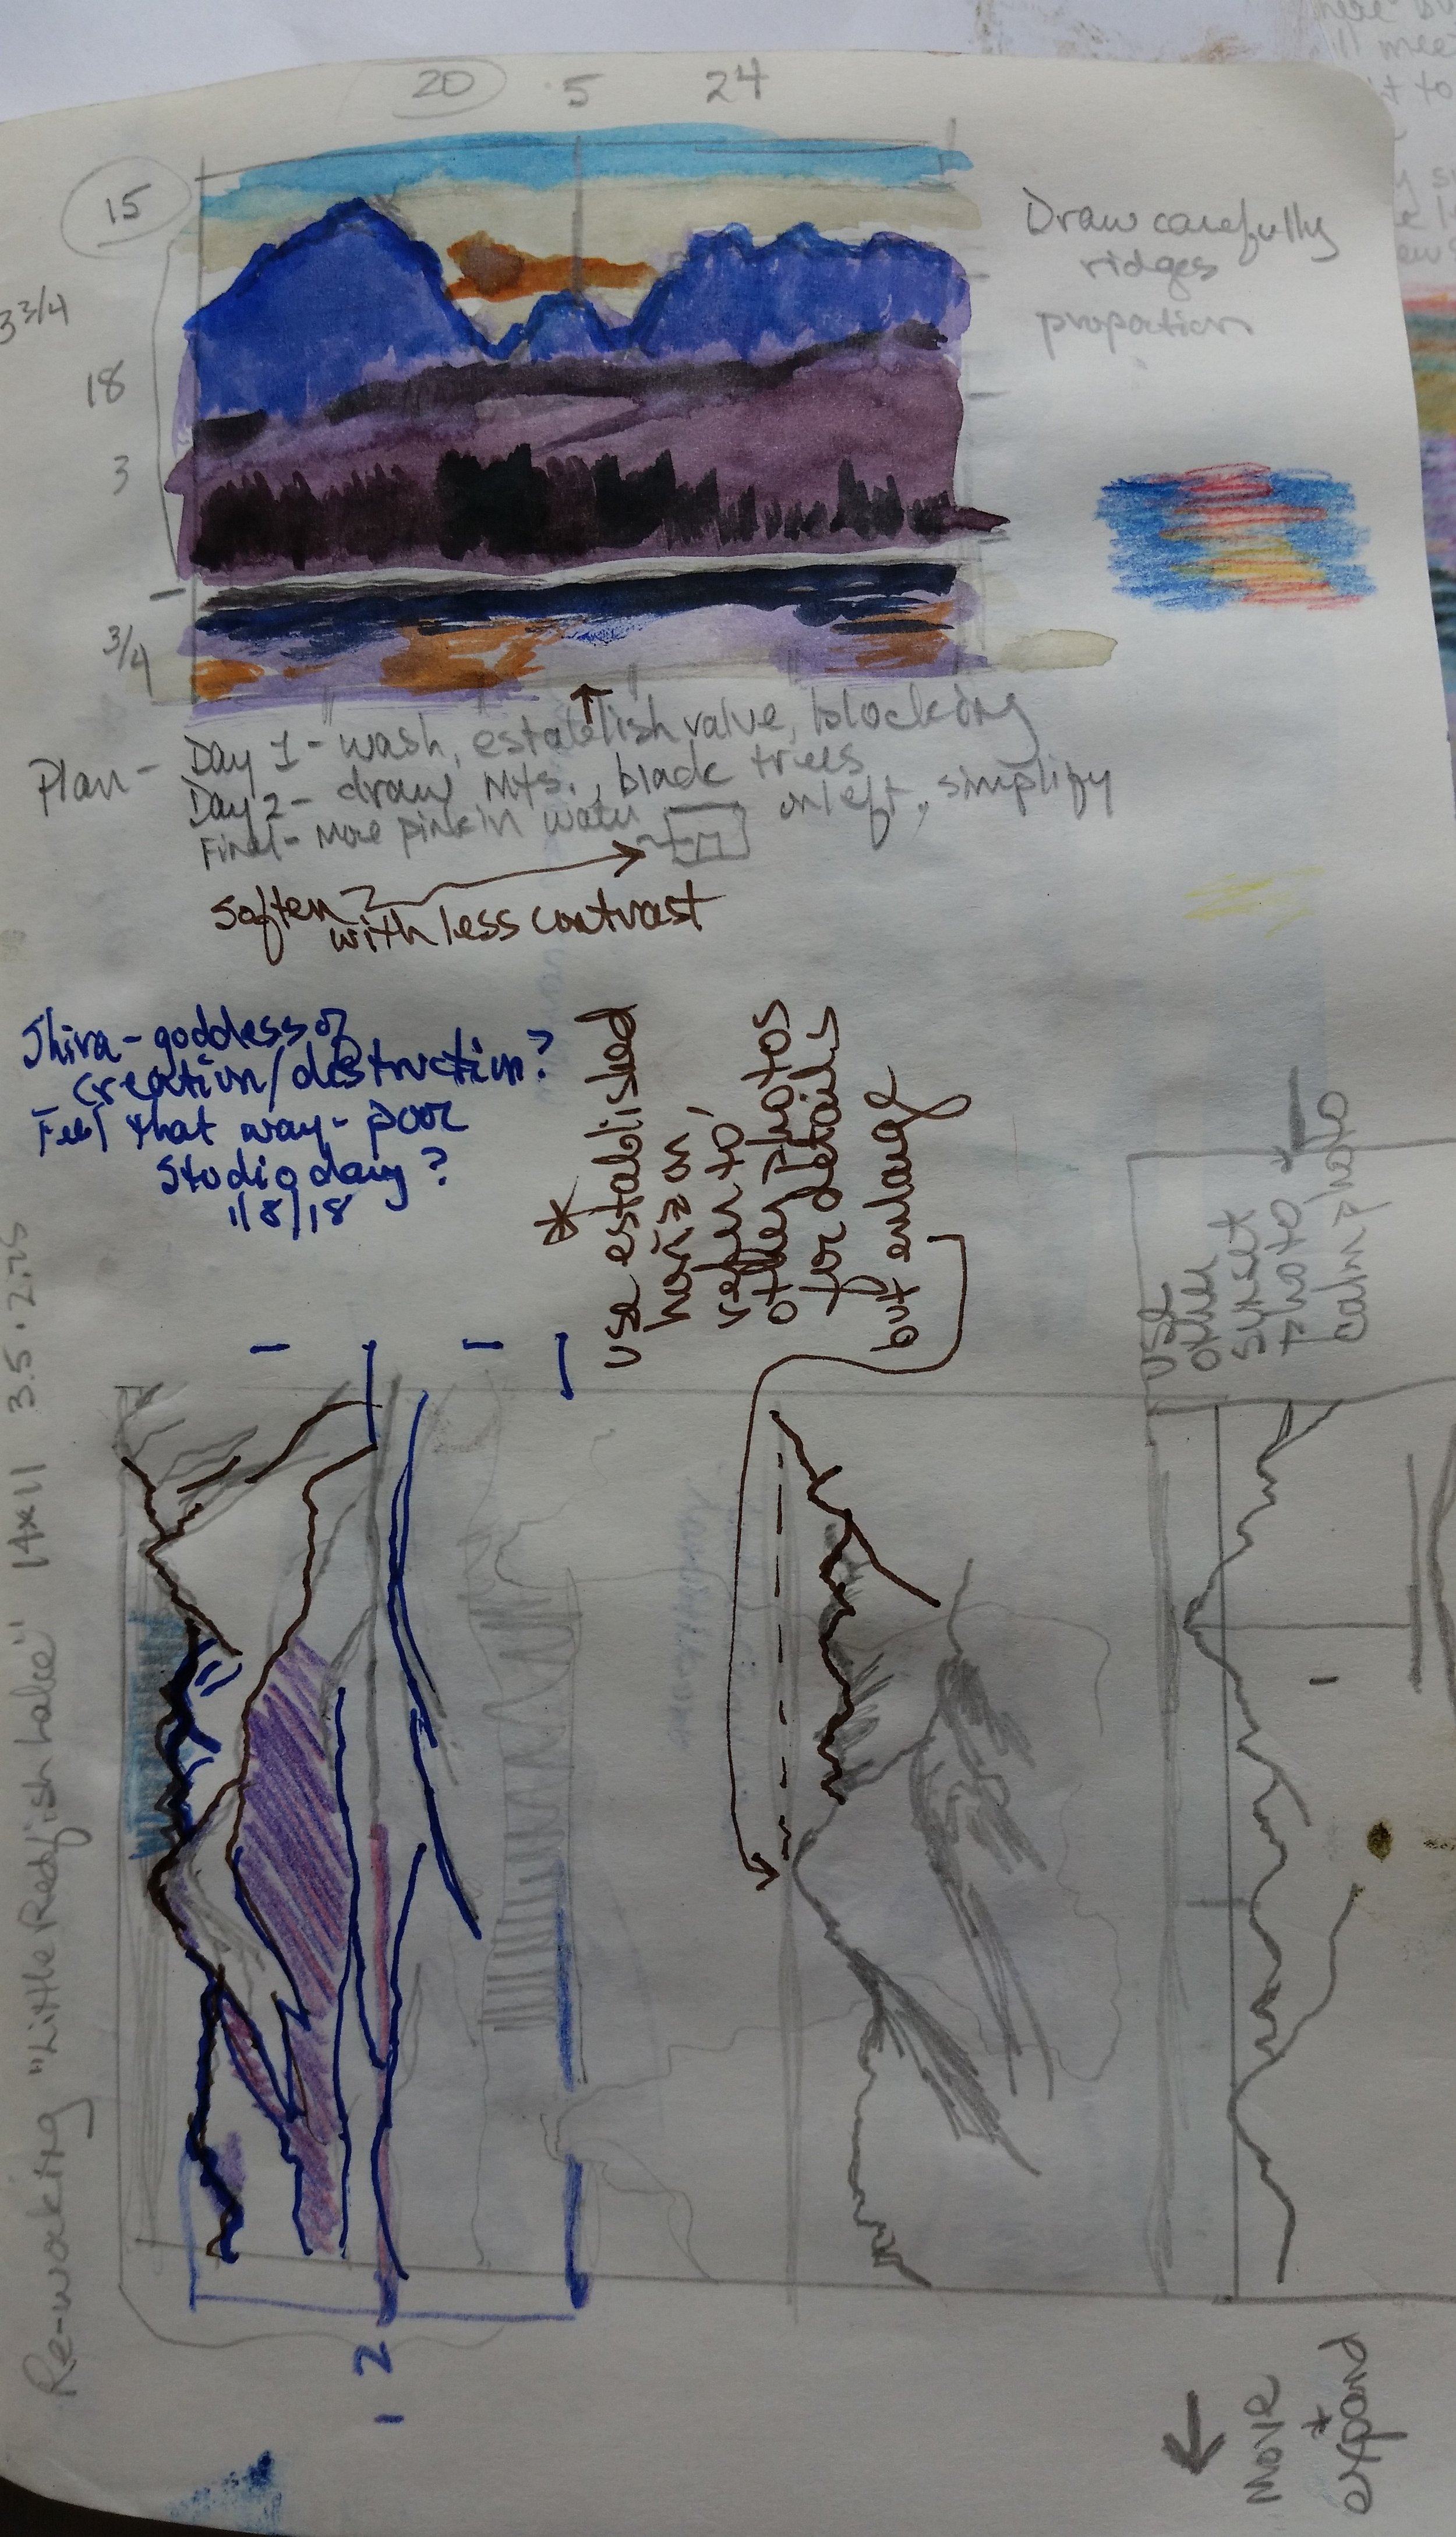 20 .5 24
15
3 3/4
18
3
3/4
Draw carefully
ridges
proportion
Plan - Day 1 - wash, establish value, blocking
Day 2 - draw Mts., black trees
Final - More pink in water on left, simplify
soften?
with less contrast
Shiva - goddess of
creation/destruction?
Feel that way - poor
Studio day?
1/8/18
* use established
horizon,
refer to
other Photos
for details
but enlarge
use
other
sunset
Photo
calm photo
Re-working "Little Redfish Lake" 14x11 3.5 · 2.75
2
1
Move
+
expand